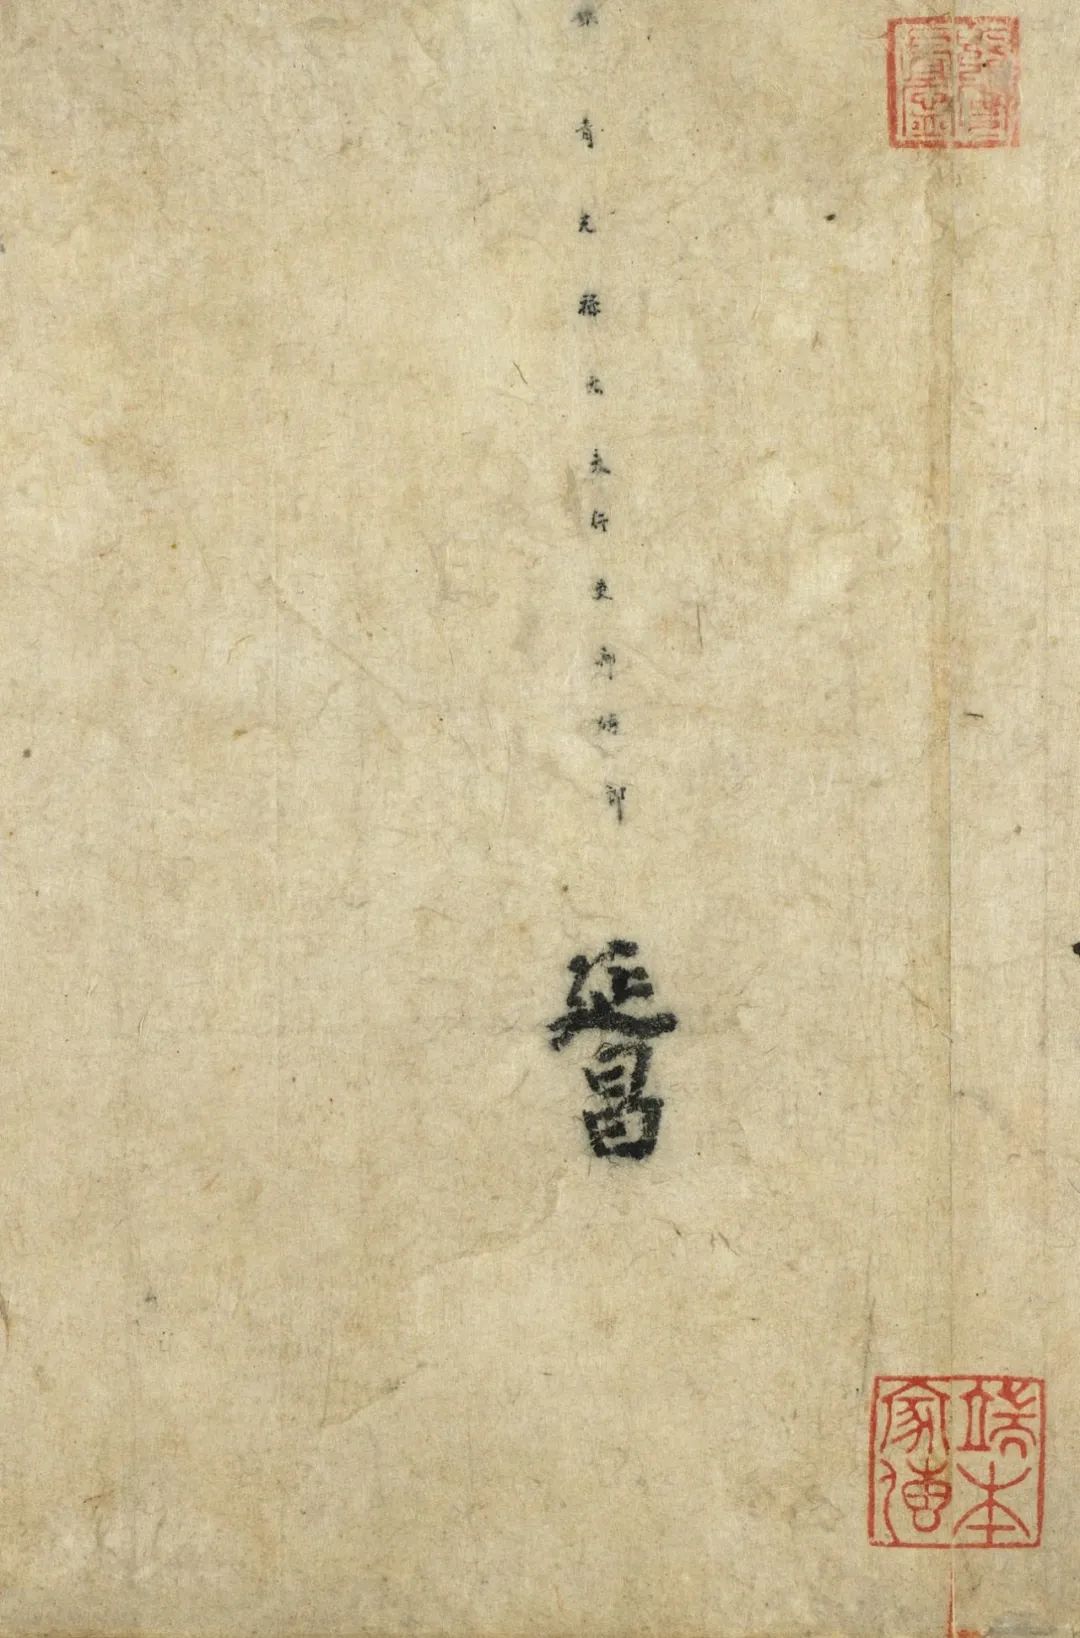 端本家傳
青光祿大夫行吏部侍郎
延昌